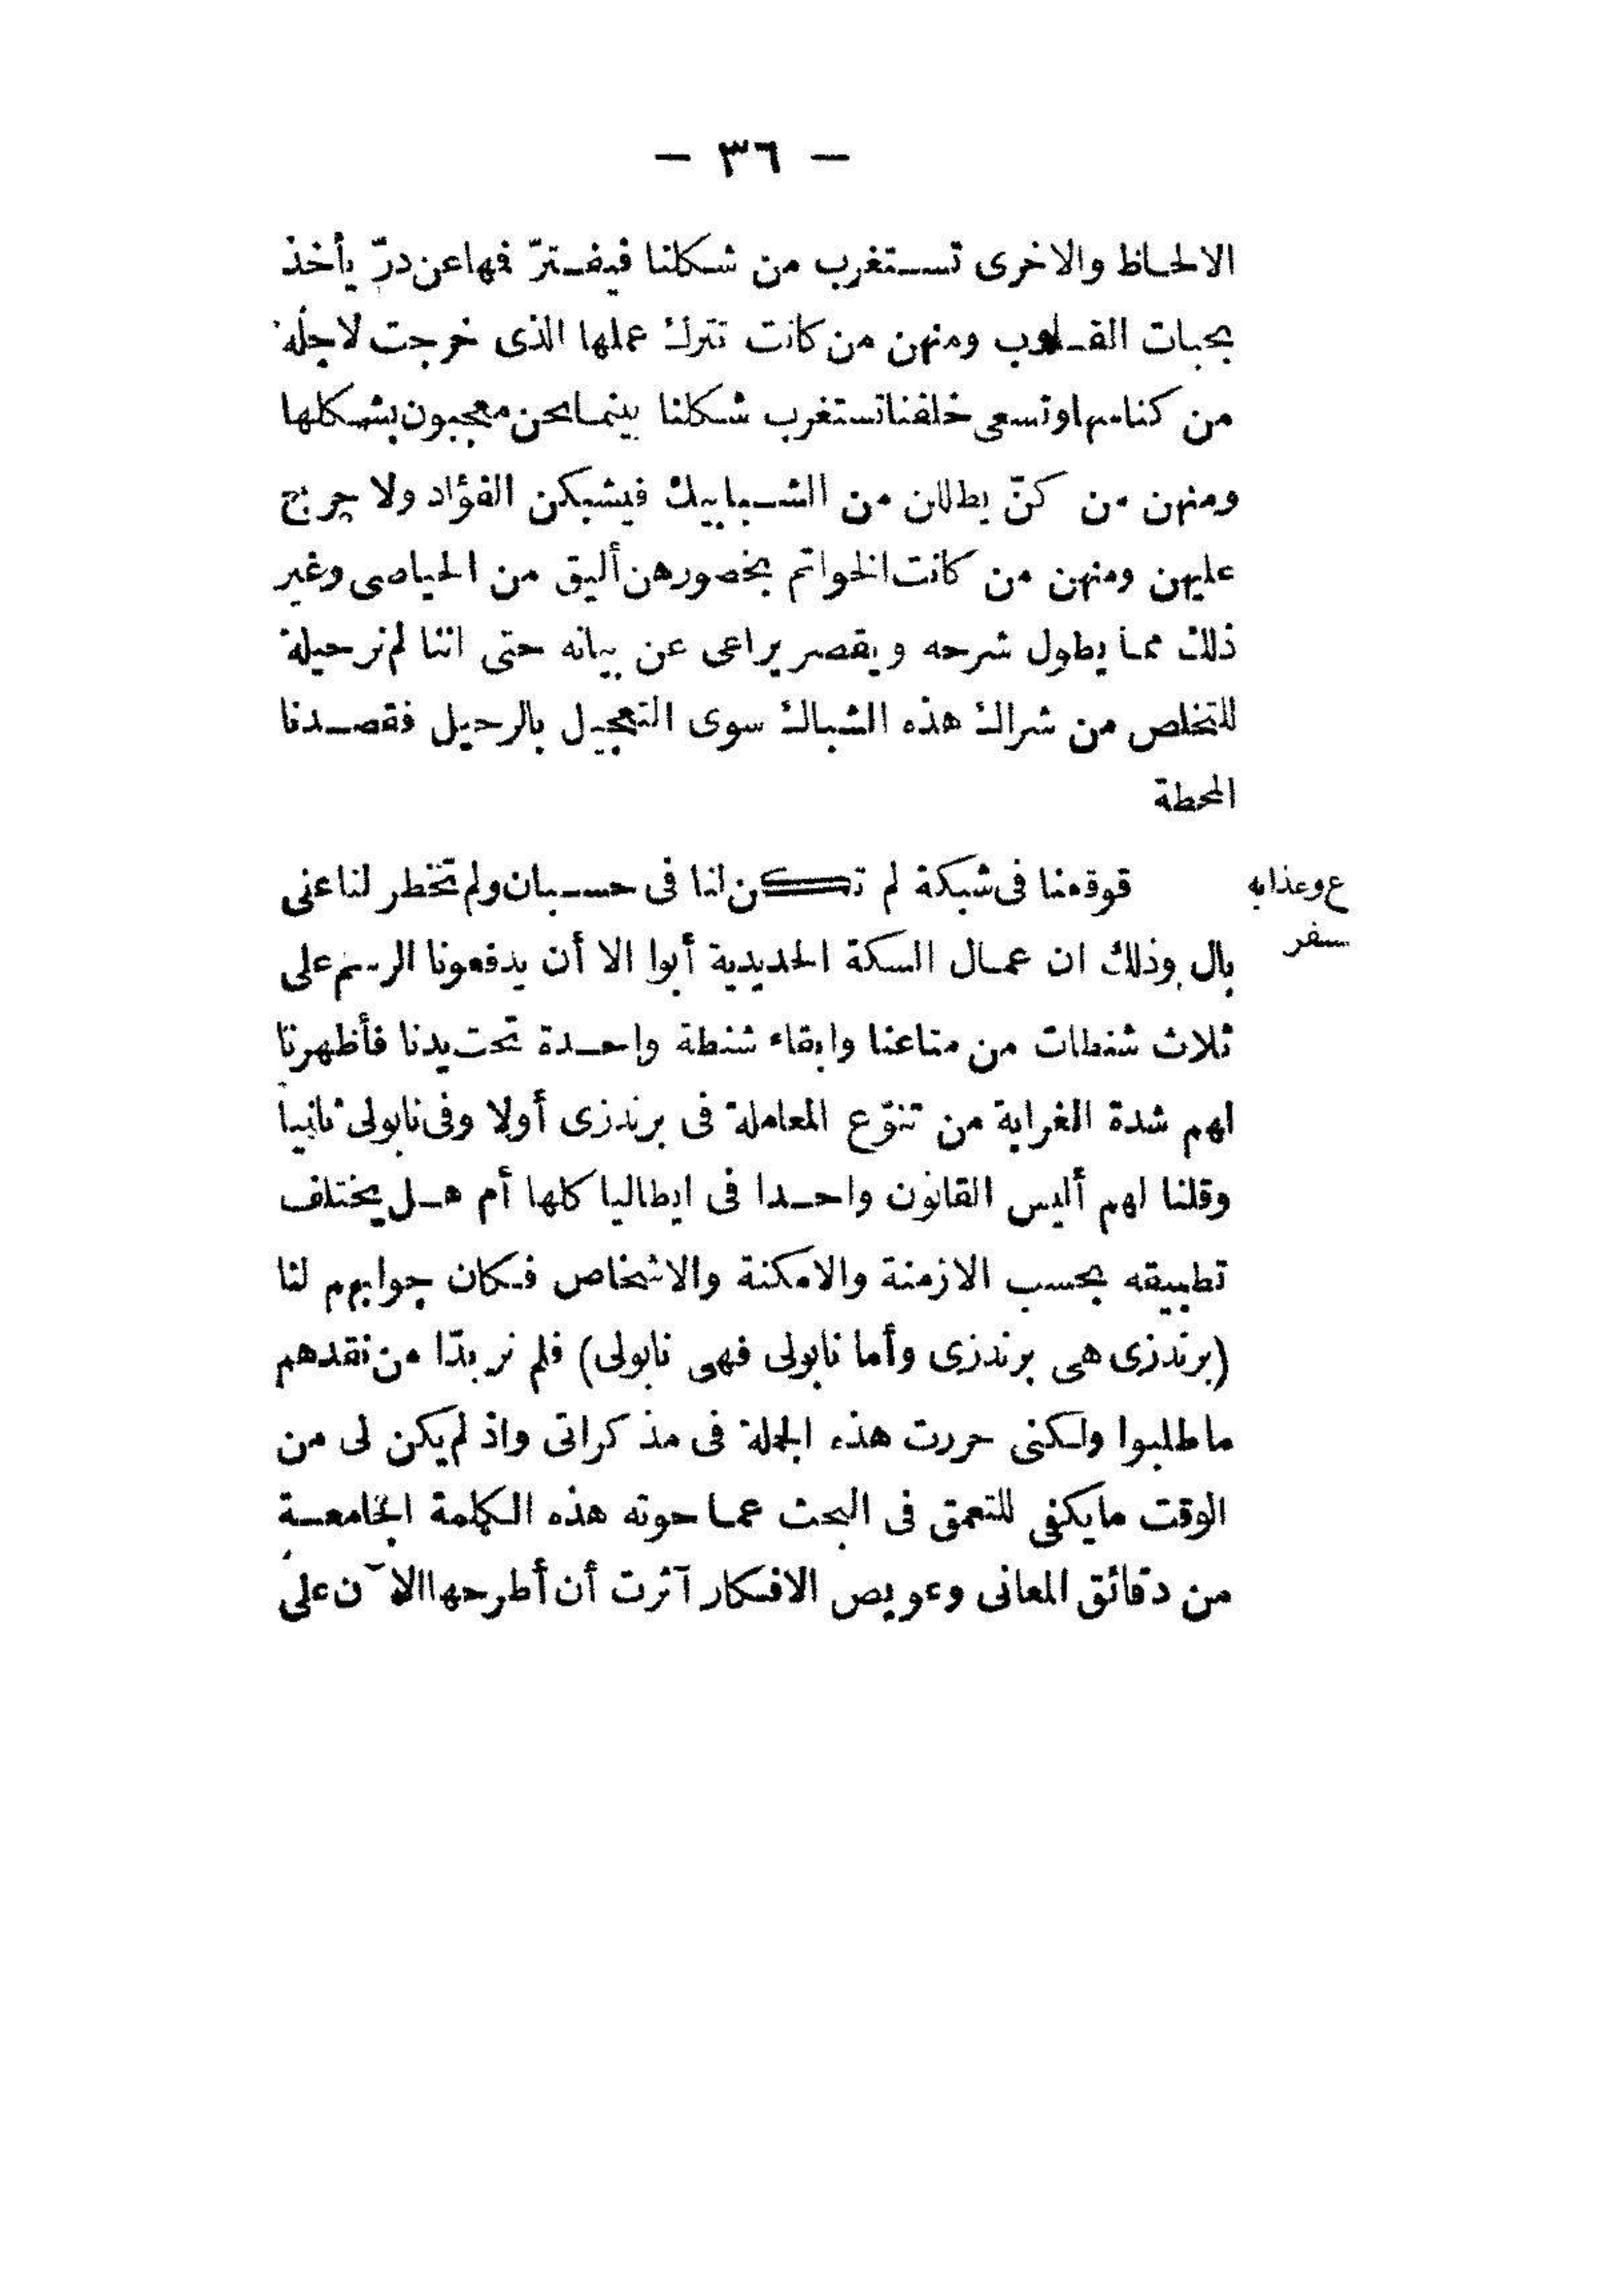 — ٣٦ —
الالحاظ والاخرى تستغرب من شكلنا فيفترّ فهاعن درّ يأخذ
بحبات القلوب ومنهن من كانت تترك عملها الذى خرجت لاجله
من كناسها وتسعى خلفنا تستغرب شكلنا بينما نحن معجبون بشكلها
ومنهن من كنّ يطللن من الشبابيك فيشبكن الفؤاد ولا حرج
عليهن ومنهن من كانت الخواتم بخصورهن أليق من الحياصى وغير
ذلك مما يطول شرحه ويقصر يراعى عن بيانه حتى اننا لم نر حيلة
للتخلص من شراك هذه الشباك سوى التعجيل بالرحيل فقصدنا
المحطة
ع وعذابه
سفر
فوقعنا فى شبكة لم تكن لنا فى حسبان ولم تخطر لنا على
بال وذلك ان عمال السكة الحديدية أبوا الا أن يدفعونا الرسم على
ثلاث شنطات من متاعنا وابقاء شنطة واحدة تحت يدنا فأظهرنا
لهم شدة الغرابة من تنوّع المعاملة فى برندزى أولا وفى نابولى ثانيا
وقلنا لهم أليس القانون واحدا فى ايطاليا كلها أم هل يختلف
تطبيقه بحسب الازمنة والامكنة والاشخاص فكان جوابهم لنا
(برندزى هى برندزى وأما نابولى فهى نابولى) فلم نر بدّا من نقدهم
ما طلبوا ولكنى حررت هذه الجملة فى مذكراتى واذ لم يكن لى من
الوقت ما يكفى للتعمق فى البحث عما حوته هذه الكلمة الجامعة
من دقائق المعانى وعويص الافكار آثرت أن أطرحها الآن على